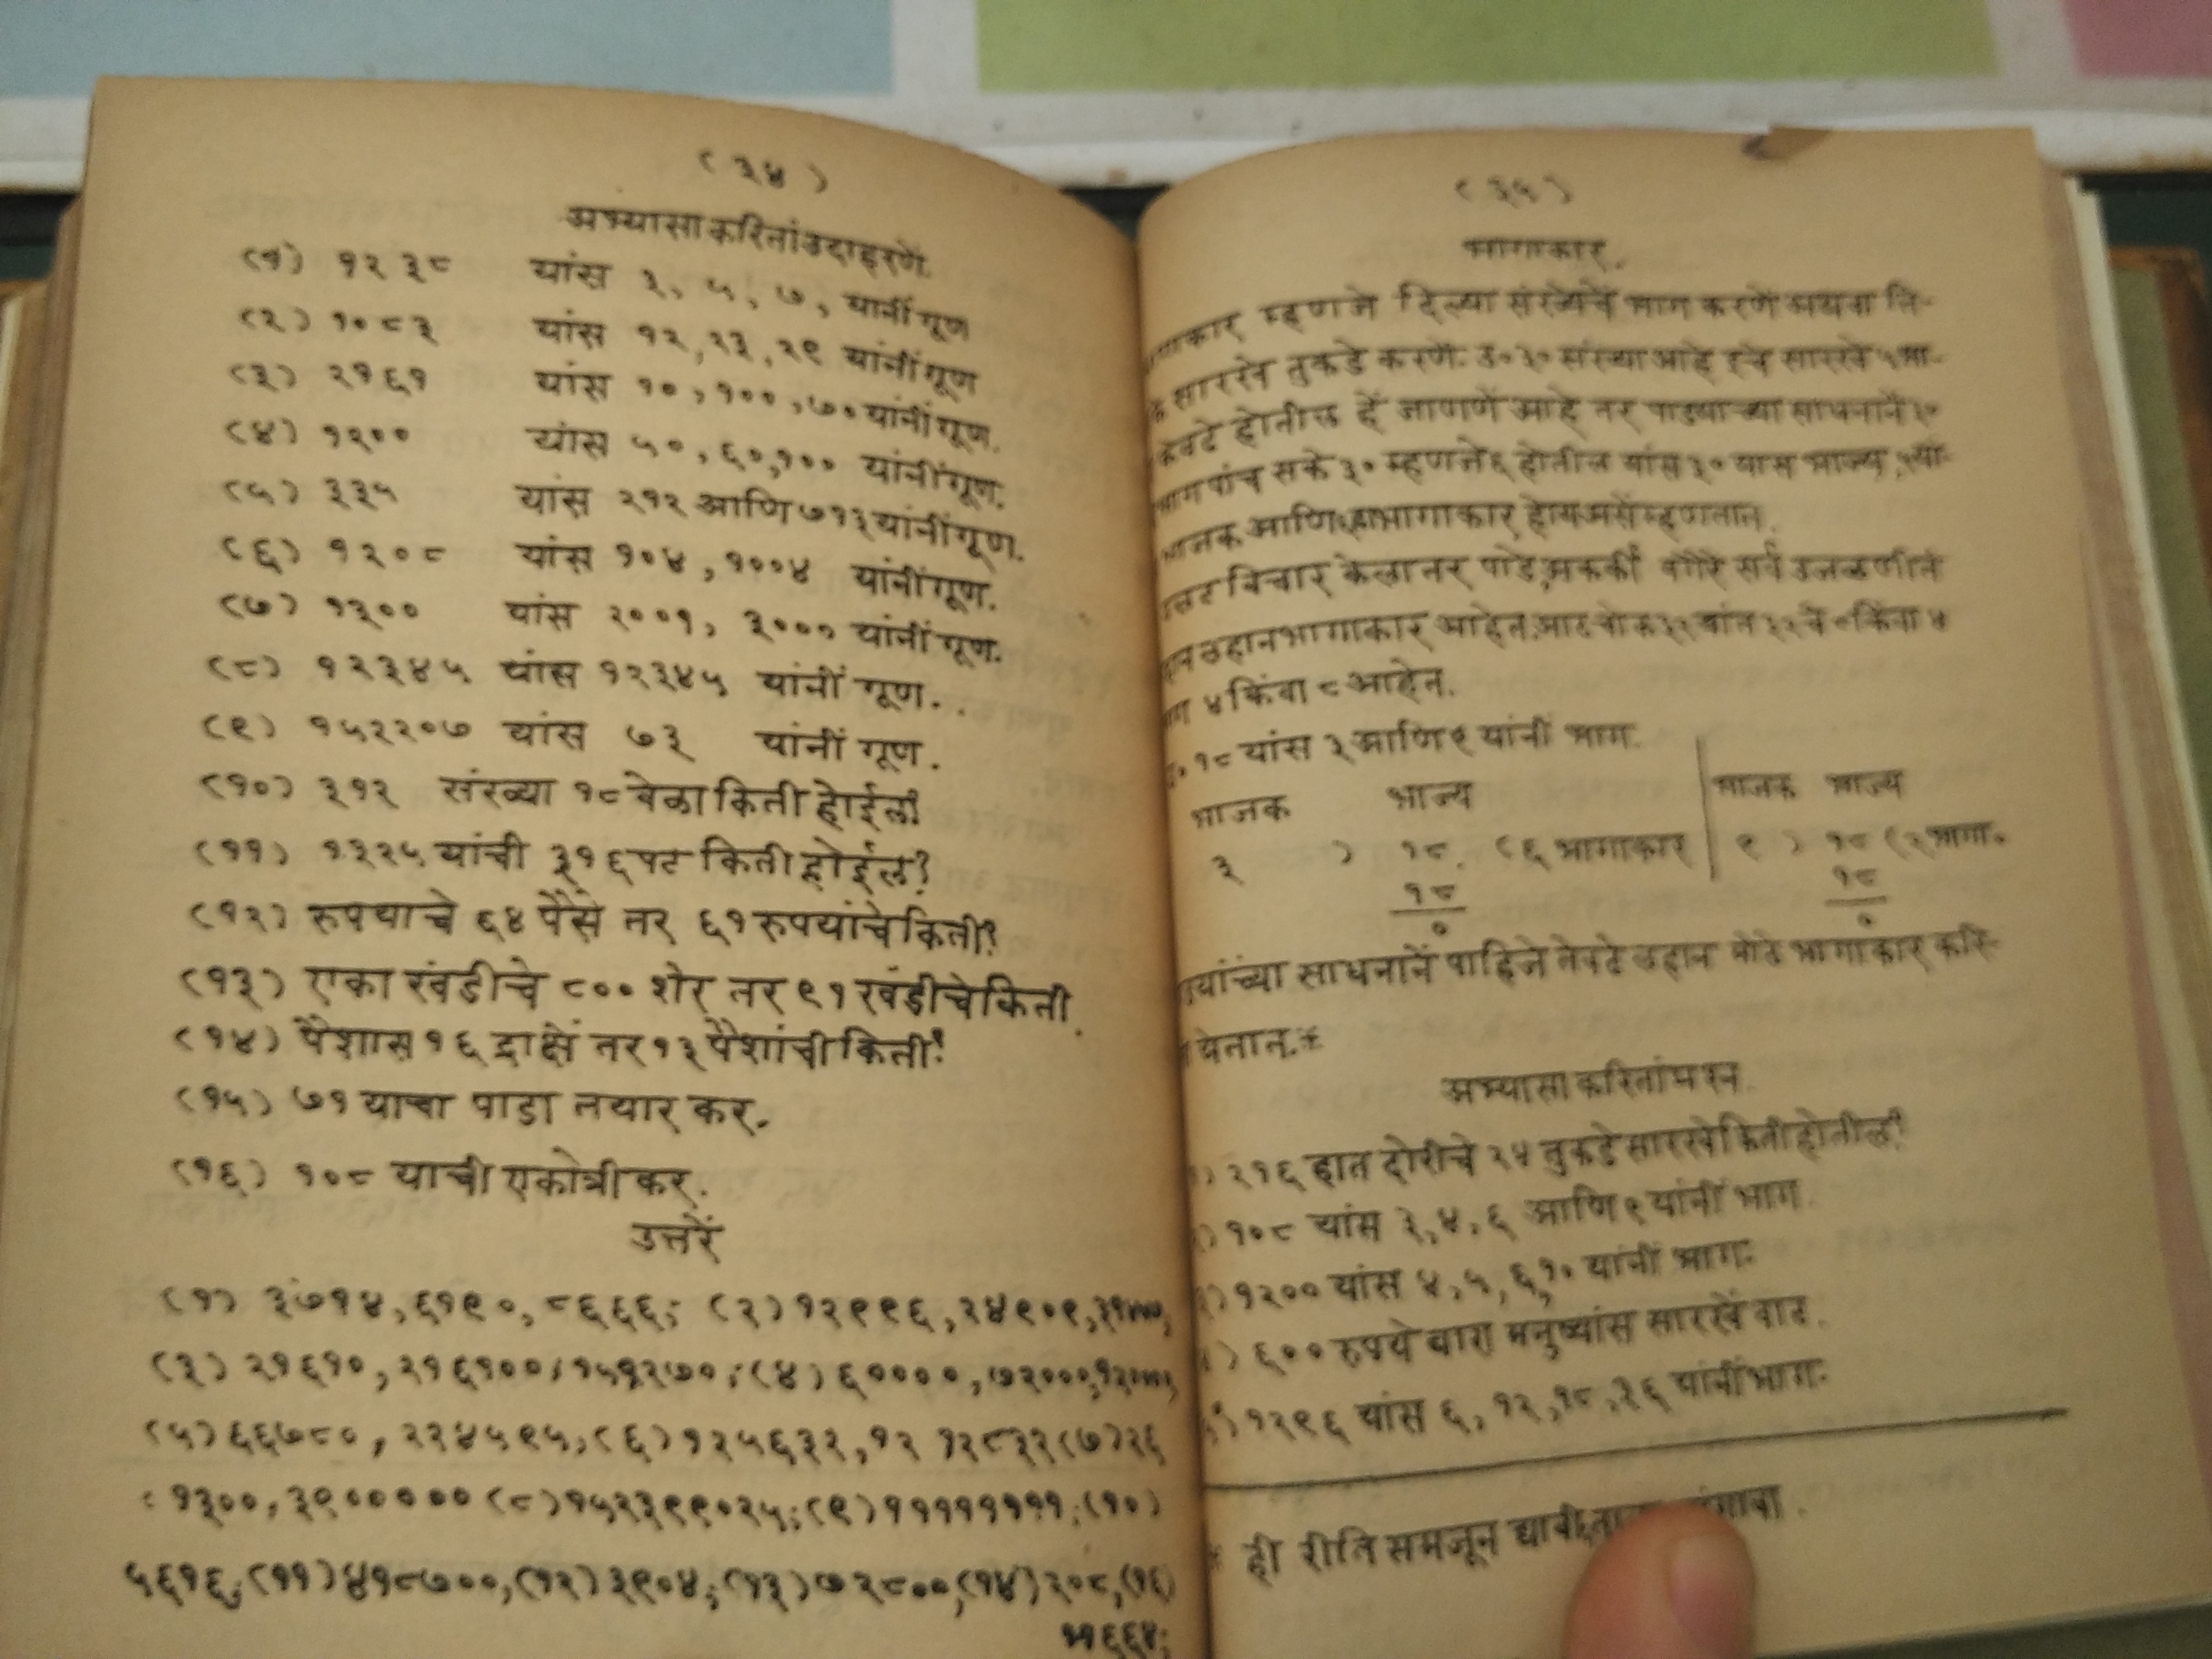 ( ३४ )
अभ्यासाकरितांउदाहरणें.
(१) १२३८ यांस ३, ५, ७, यानीं गूण
(२) १०८३ यांस १२, २३, २९ यांनींगूण
(३) २१६१ यांस १०, १००, ७० यांनींगूण.
(४) १२०० यांस ५०, ६०, १०० यांनींगूण.
(५) ३३५ यांस २१२ आणि ७१३ यांनींगूण.
(६) १२०८ यांस १०४, १००४ यांनींगूण.
(७) १३०० यांस २००१, ३००० यांनींगूण.
(८) १२३४५ यांस १२३४५ यांनीं गूण.
(९) १५२२०७ यांस ७३ यांनीं गूण.
(१०) ३१२ संख्या १८ वेळा किती होईल?
(११) १३२५ यांची ३१६ पट किती होईल?
(१२) रुपयाचे ६४ पैसे तर ६१ रुपयांचे किती?
(१३) एका खंडीचे ८०० शेर तर ९१ खंडीचे किती.
(१४) पैशास १६ द्राक्षें तर १३ पैशांची किती?
(१५) ७१ याचा पाडा तयार कर.
(१६) १०८ याची एकोत्री कर.
उत्तरें
(१) ३७१४, ६१९०, ८६६६; (२) १२९९६, २४९०९,
(३) २१६१०, २१६१००, १५१२७०; (४) ६००००, ७२०००,
(५) ६६७८०, २२४५९५, (६) १२५६३२, १२१२८३२ (७) २६
०१३००, ३९००००० (८) १५२३९९०२५; (९) ११११११११; (१०)
५६१६; (११) ४१८७००, (१२) ३९०४; (१३) ७२८००, (१४) २०८, (१६)
११६६४;
( ३५ )
भागाकार.
म्हणजे दिल्या संख्येचे भाग करणें अथवा ति-
सारखे तुकडे करणें. उ० ३० संख्या आहे इचे सारखे ५ भा-
केवढे होतील हें जाणणें आहे तर पाड्याच्या साधनानें ३०
पांच सके ३० म्हणजे ६ होतील यांस ३० यास भाज्य, ५ या-
भाजक आणि भागाकार होय असें म्हणतात.
विचार केला तर पाढे, वगैरे सर्व उजळणीत
लहान भागाकार आहेत. आठ चोक ३२ यांत ३२ चे ८ किंवा ४
४ किंवा ८ आहेत.
१८ यांस ३ आणि ९ यांनीं भाग.
भाजक भाज्य भाजक भाज्य
३ ) १८ ( ६ भागाकार ९ ) १८ ( २ भागा.
१८ १८
० ०
साधनानें पाहिजे तेवढे लहान मोठे भागाकार करि-
येतात.*
अभ्यासाकरितां प्रश्न.
) २१६ हात दोरीचे २४ तुकडे सारखे किती होतील?
) १०८ यांस ३, ४, ६ आणि ९ यांनीं भाग
) १२०० यांस ४, ५, ६, १० यांनीं भाग.
) ६०० रुपये बारा मनुष्यांस सारखे वाट.
) १२९६ यांस ६, १२, १८, ३६ यांनीं भाग.
* ही रीति समजून